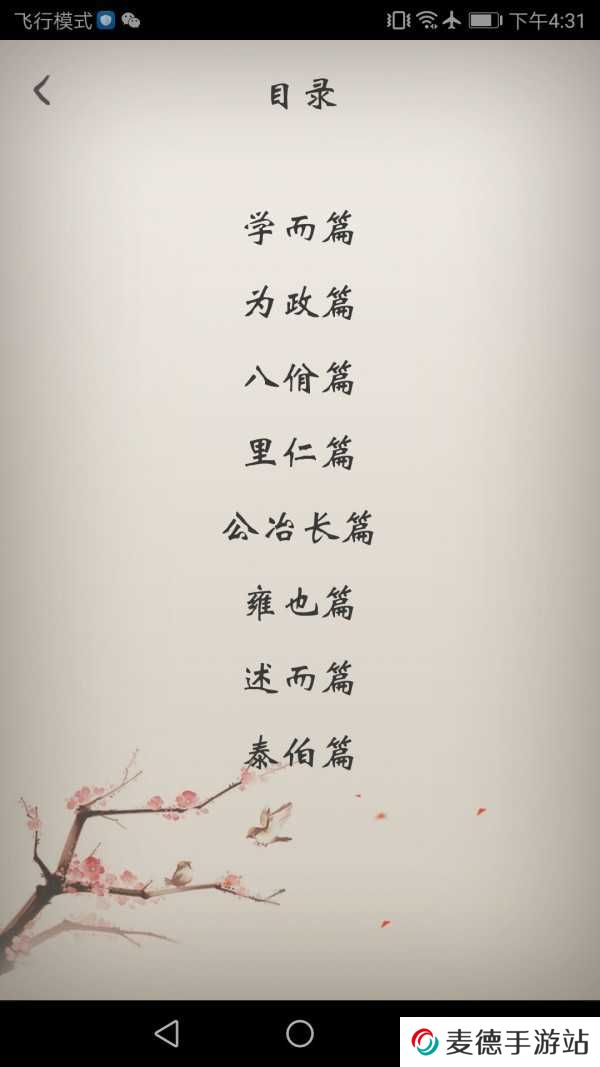 飞行模式 下午4:31
目录
学而篇
为政篇
八佾篇
里仁篇
公冶长篇
雍也篇
述而篇
泰伯篇
麦德手游站